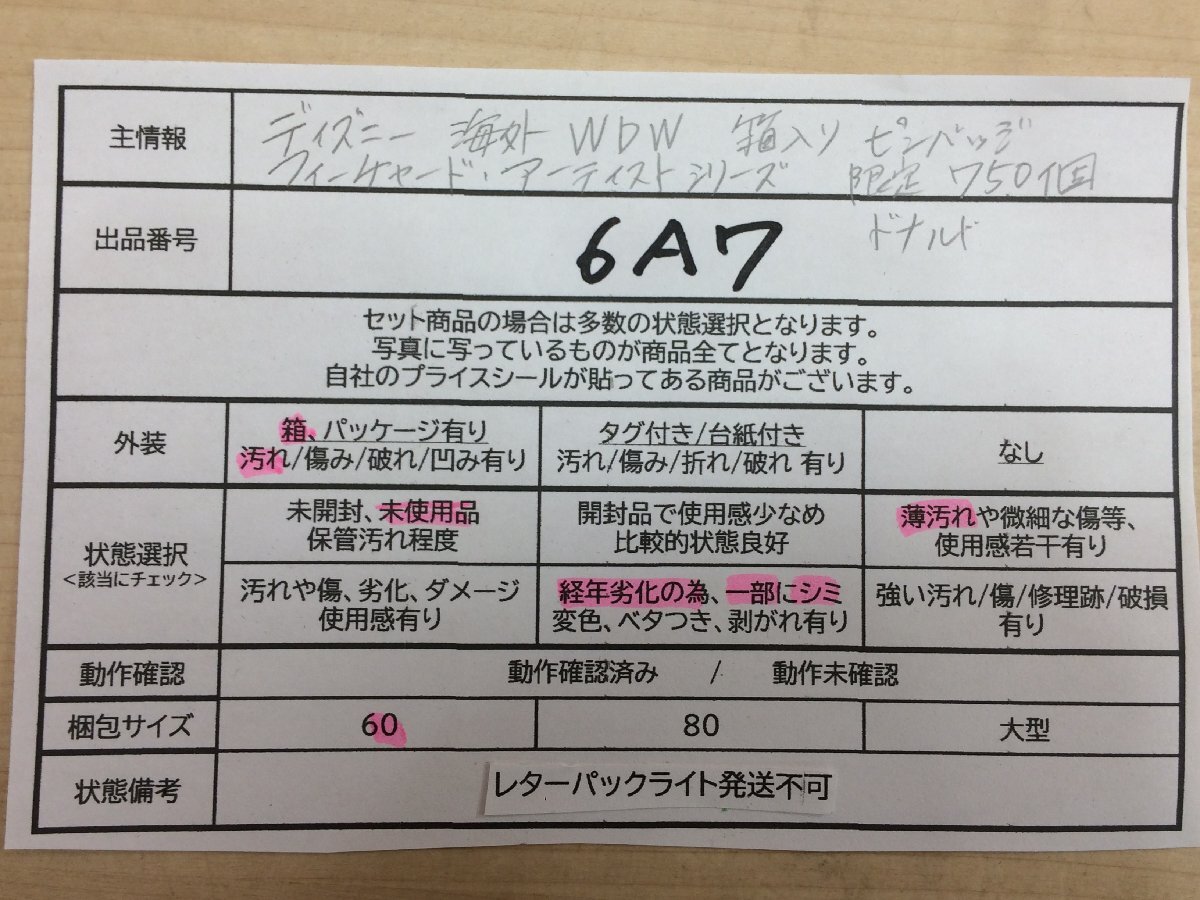 主情報
ディズニー 海外 WDW 箱入り ピンバッジ
フィーチャード・アーティストシリーズ 限定 750個
出品番号
6A7
ドナルド
セット商品の場合は多数の状態選択となります。
写真に写っているものが商品全てとなります。
自社のプライスシールが貼ってある商品がございます。
外装
箱、パッケージ有り
汚れ/傷み/破れ/凹み有り
タグ付き/台紙付き
汚れ/傷み/折れ/破れ 有り
なし
状態選択
<該当にチェック>
未開封、未使用品
保管汚れ程度
開封品で使用感少なめ
比較的状態良好
薄汚れや微細な傷等、
使用感若干有り
汚れや傷、劣化、ダメージ
使用感有り
経年劣化の為、一部にシミ
変色、ベタつき、剥がれ有り
強い汚れ/傷/修理跡/破損
有り
動作確認
動作確認済み / 動作未確認
梱包サイズ
60
80
大型
状態備考
レターパックライト発送不可